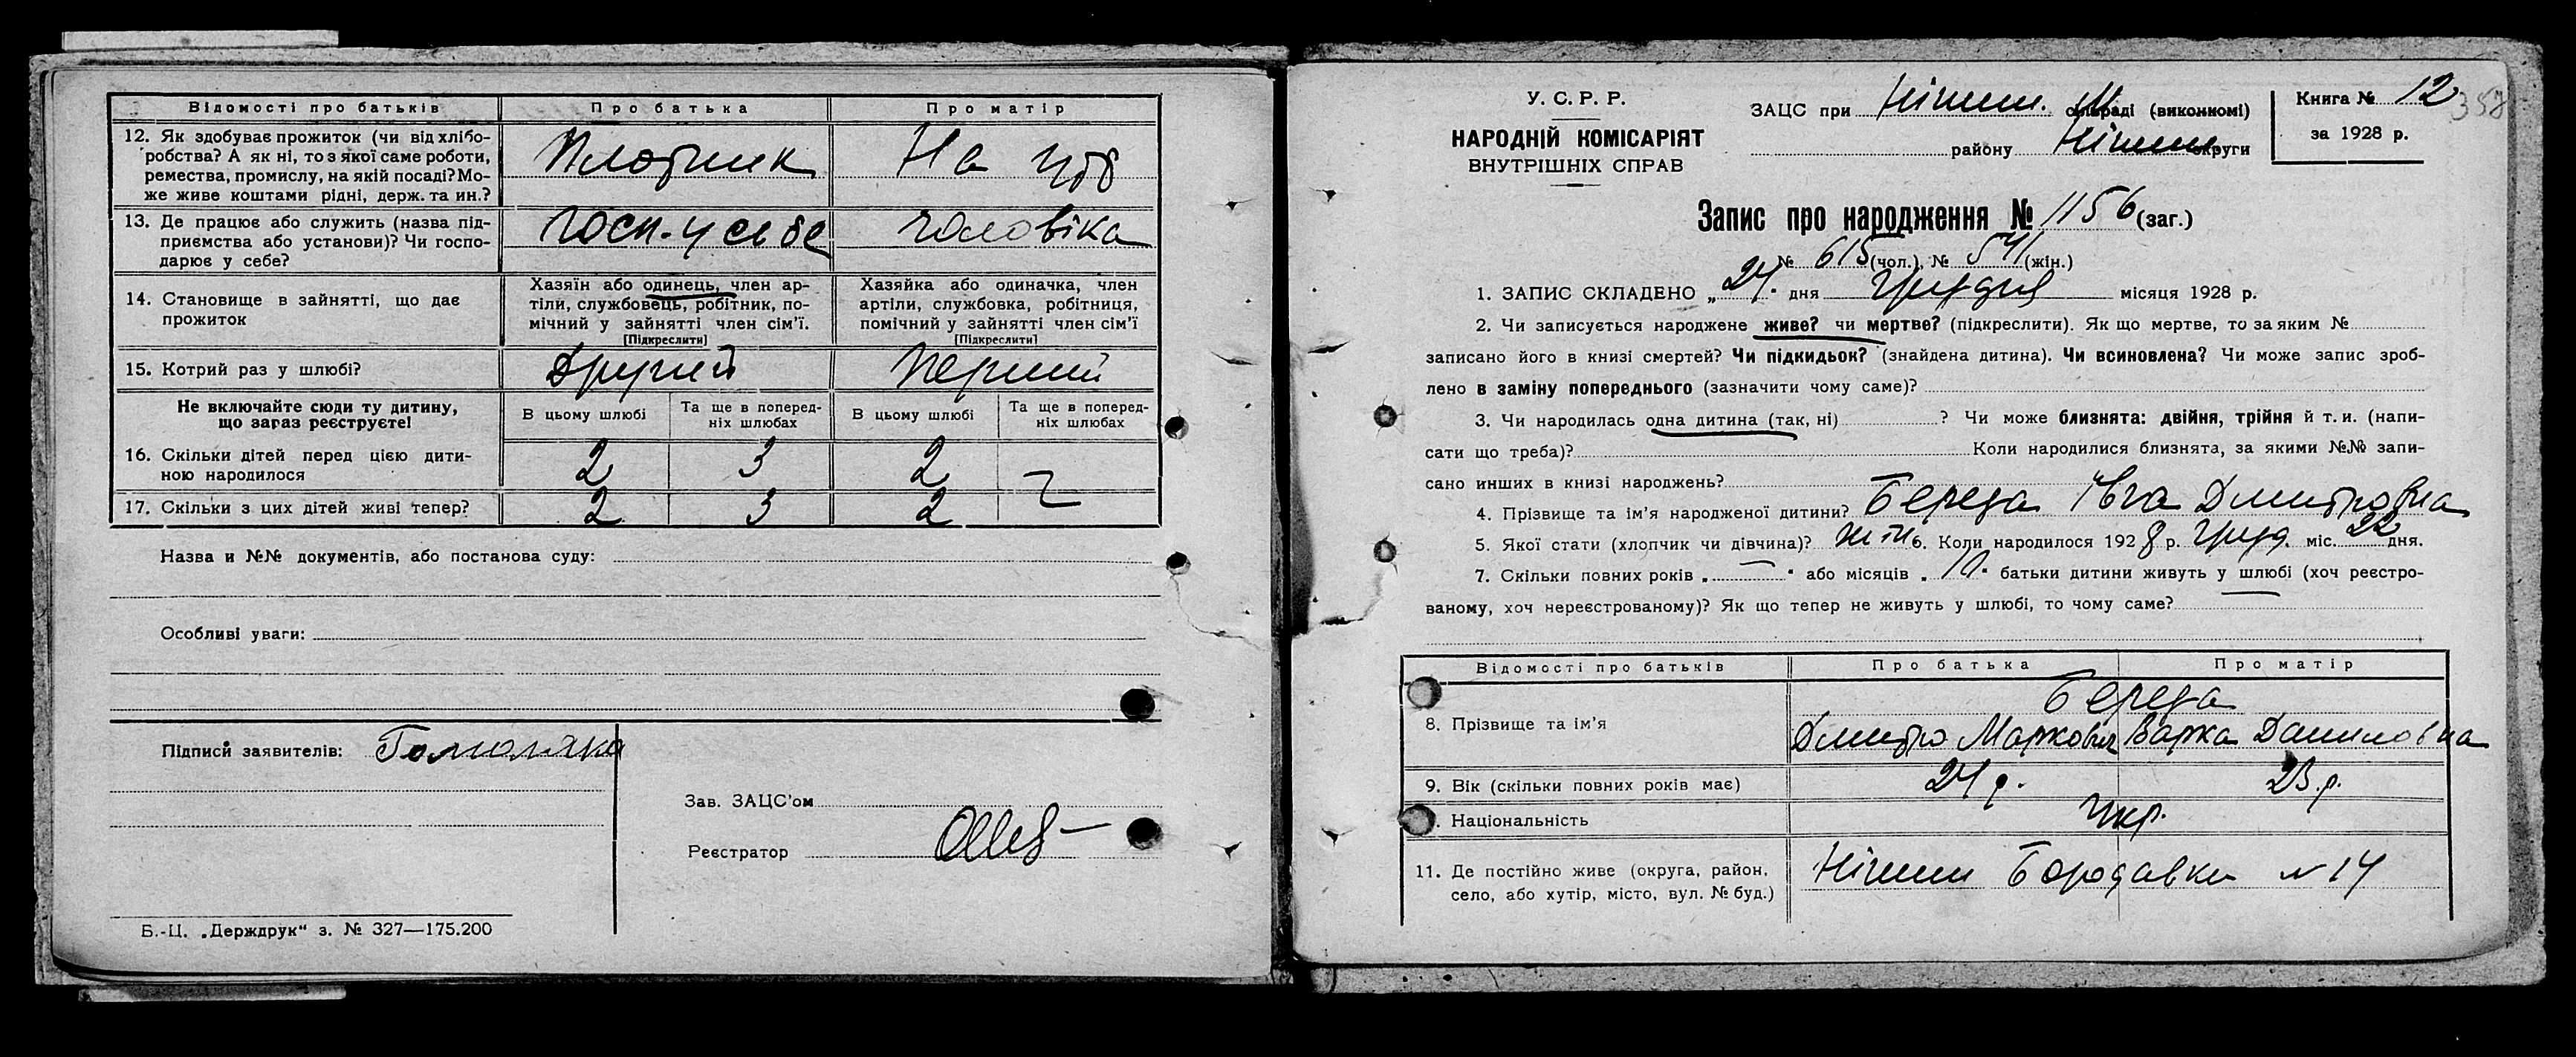 Відомості про батьків Про батька Про матір
12. Як здобуває прожиток (чи від хлібо-
робства? А як ні, то з якої саме роботи,
ремества, промислу, на якій посаді? Мо-
же живе коштами рідні, держ. та ин.?
Плотник На утр
13. Де працює або служить (назва під-
приємства або установи)? Чи госпо-
дарює у себе?
госп. у себе чоловіка
14. Становище в зайнятті, що дає
прожиток
Хазяїн або одинець, член ар-
тіли, службовець, робітник, по-
мічний у зайнятті член сім'ї.
[Підкреслити]
Хазяйка або одиначка, член
артіли, службовка, робітниця,
помічний у зайнятті член сім'ї
[Підкреслити]
15. Котрий раз у шлюбі? Другий Перший
Не включайте сюди ту дитину,
що зараз реєструєте!
В цьому шлюбі
Та ще в поперед-
ніх шлюбах
В цьому шлюбі
Та ще в поперед-
ніх шлюбах
16. Скільки дітей перед цією дити-
ною народилося
2 3 2
17. Скільки з цих дітей живі тепер? 2 3 2
Назва и №№ документів, або постанова суду:
Особливі уваги:
Підписи заявителів:
Зав. ЗАЦС'ом
Реєстратор
Б.-Ц. „Держдрук“ з. № 327—175.200
У. С. Р. Р.
НАРОДНІЙ КОМІСАРІЯТ
ВНУТРІШНІХ СПРАВ
ЗАЦС при Ніжин. М раді (виконкомі)
району Ніжин округи
Книга № 12
за 1928 р.
358
Запис про народження № 1156 (заг.)
№ 615 (чол.), № 541 (жін.)
1. ЗАПИС СКЛАДЕНО „24“ дня Грудня місяця 1928 р.
2. Чи записується народжене живе? чи мертве? (підкреслити). Як що мертве, то за яким №
записано його в книзі смертей? Чи підкидьок? (знайдена дитина). Чи всиновлена? Чи може запис зроб-
лено в заміну попереднього (зазначити чому саме)?
3. Чи народилась одна дитина (так, ні) ? Чи може близнята: двійня, трійня й т. и. (напи-
сати що треба)? Коли народилися близнята, за якими №№ запи-
сано инших в книзі народжень?
4. Прізвище та ім'я народженої дитини? Береза Ївга Дмитровна
5. Якої стати (хлопчик чи дівчина)? жін 6. Коли народилося 1928 р. Груд. міс. 22 дня.
7. Скільки повних років „—“ або місяців „10“ батьки дитини живуть у шлюбі (хоч реєстро-
ваному, хоч нереєстрованому)? Як що тепер не живуть у шлюбі, то чому саме?
Відомості про батьків Про батька Про матір
Береза
8. Прізвище та ім'я Дмитро Маркович Варка Даниловна
9. Вік (скільки повних років має) 24 р. 23 р.
Національність Укр.
11. Де постійно живе (округа, район,
село, або хутір, місто, вул. № буд.)
Ніжин Бородавки № 14